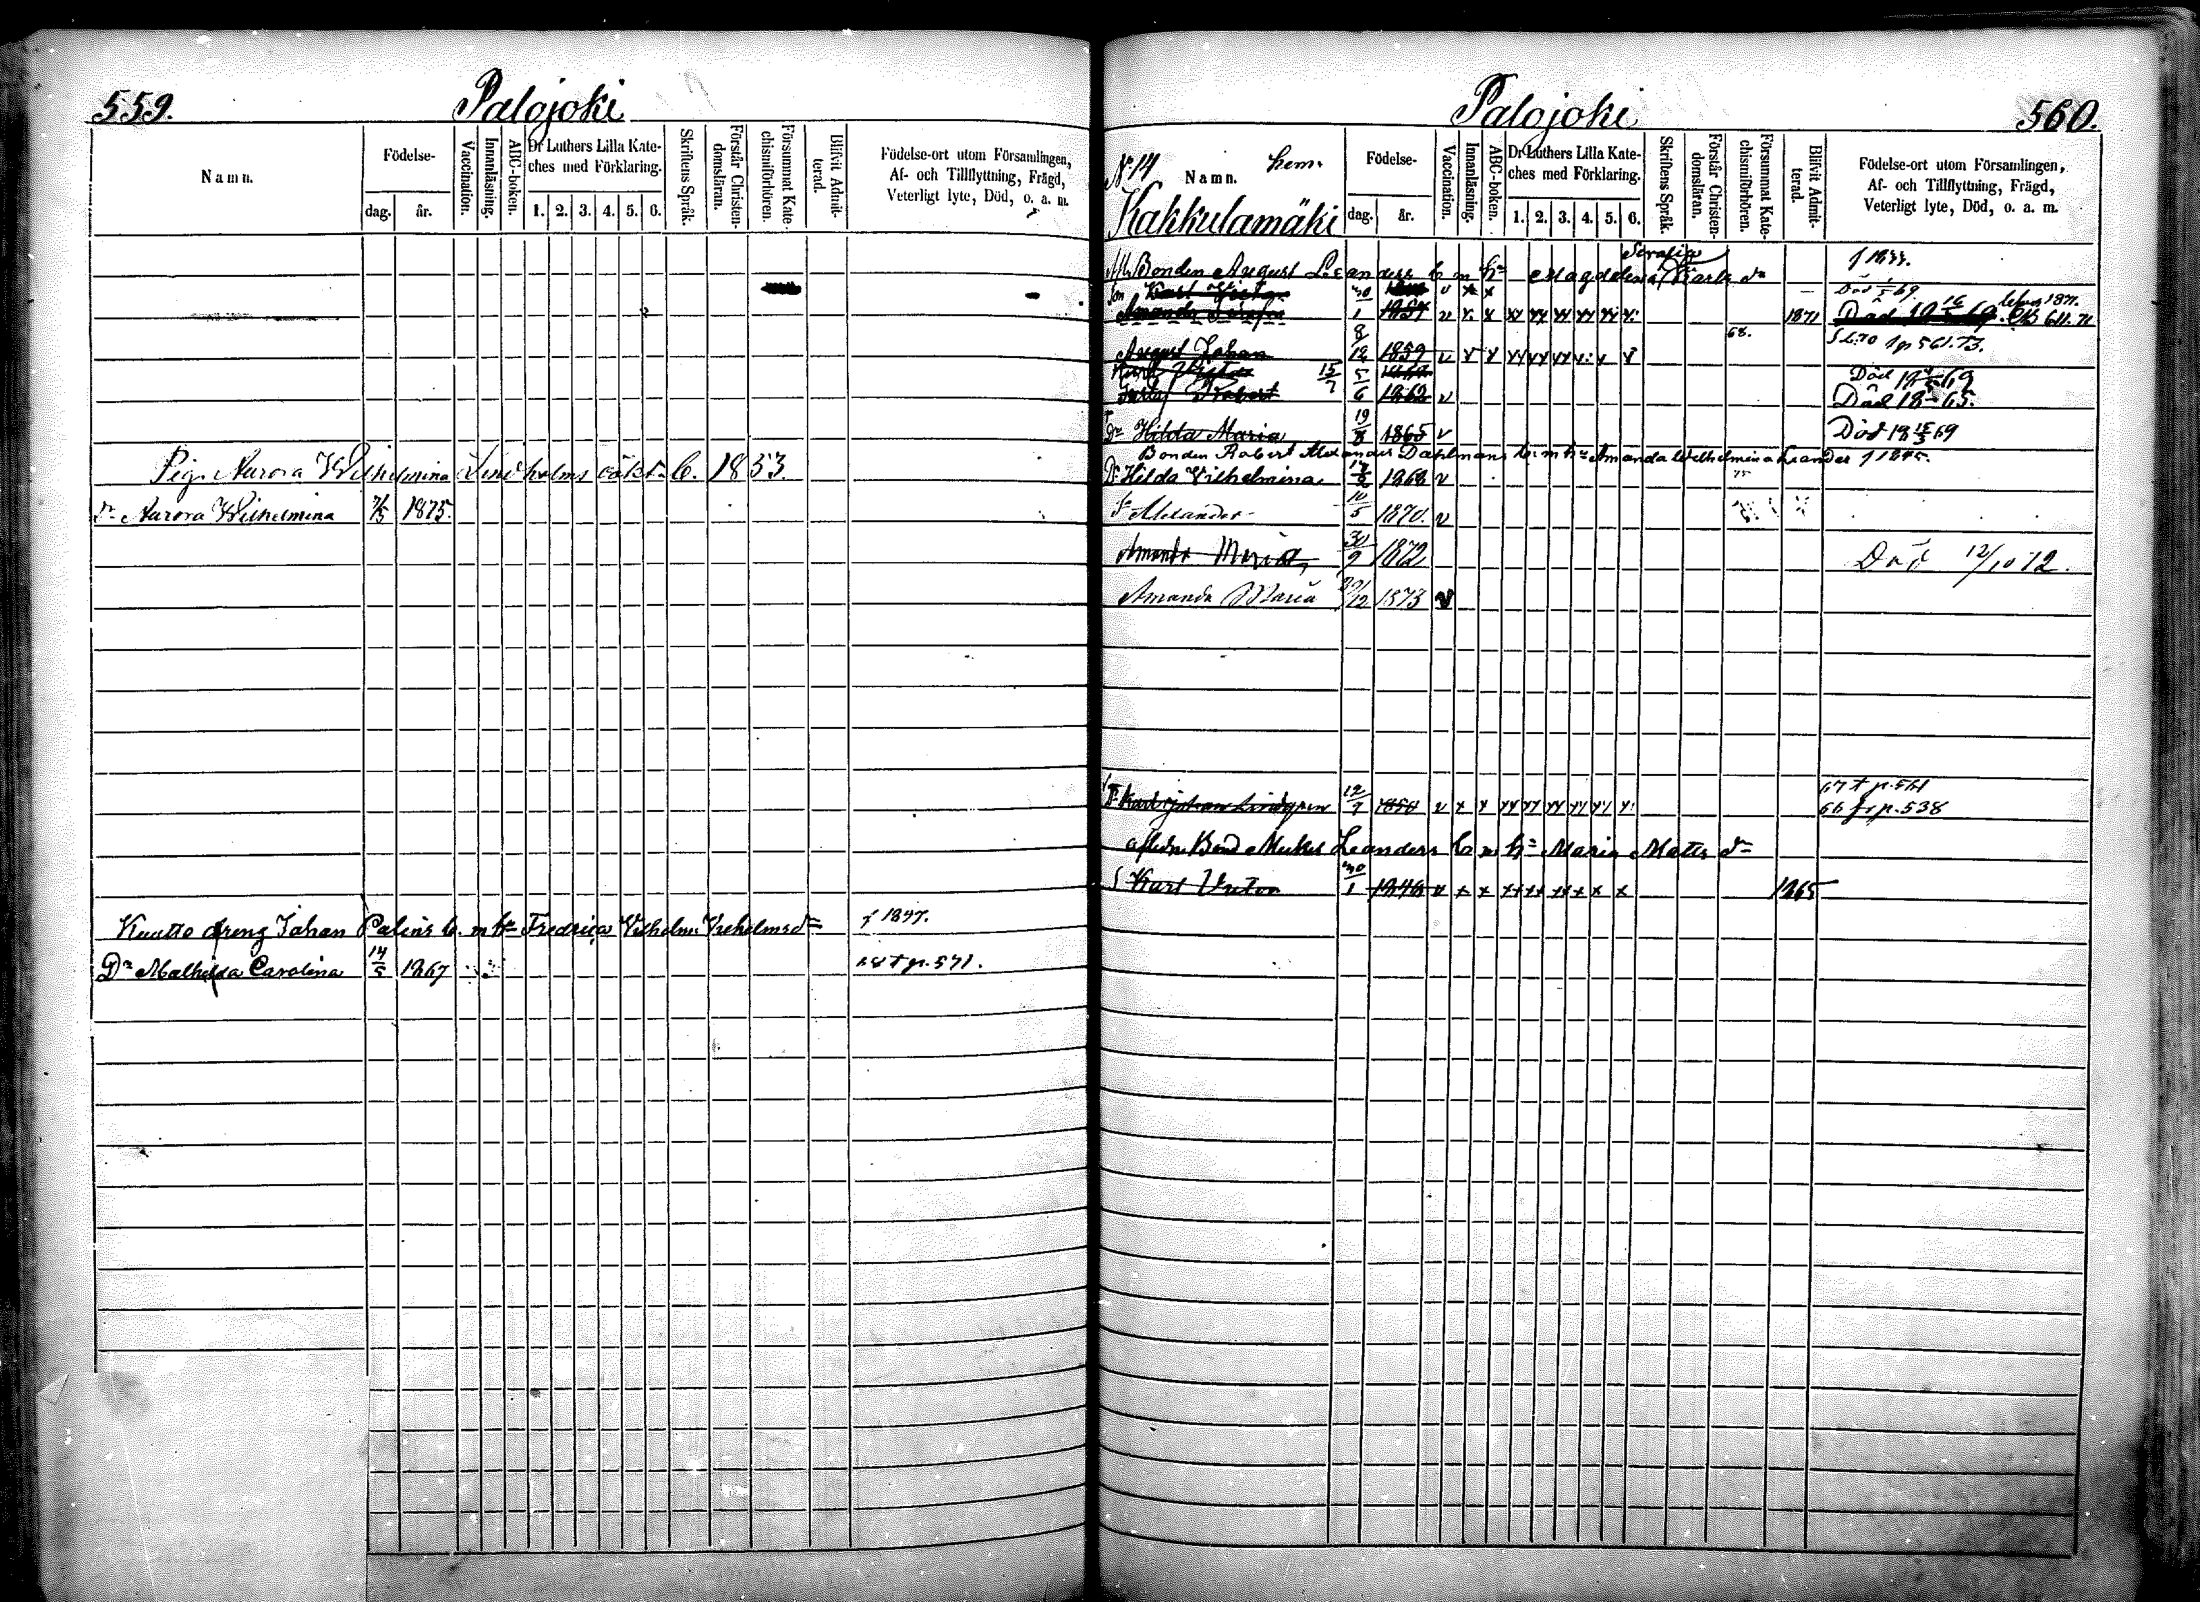 559.
Palojoki
Namn.
Födelse-
dag.
år.
Vaccination.
Innanläsning.
ABC-boken.
Dr Luthers Lilla Kate-
ches med Förklaring.
1. 2. 3. 4. 5. 6.
Skriftens Språk.
Förstår Christen-
domsläran.
Försummat Kate-
chismiförhören.
Blifvit Admit-
terad.
Födelse-ort utom Församlingen,
Af- och Tillflyttning, Frägd,
Veterligt lyte, Död, o. a. m.
Pig. Aurora Wilhelmina Lindholms oäkta b. 1853.
Dr Aurora Wilhelmina 7/5 1875.
Knutto dreng Johan Palins b. m hu Fredrica Vilhelm. Vilhelmsdr f 1847.
Dr Mathilda Carolina 14/5 1867 t p. 571.
Palojoki
560.
No 14
Namn.
hem.
Kakkulamäki
Födelse-
dag.
år.
Vaccination.
Innanläsning.
ABC-boken.
Dr Luthers Lilla Kate-
ches med Förklaring.
1. 2. 3. 4. 5. 6.
Skriftens Språk.
Förstår Christen-
domsläran.
Försummat Kate-
chismiförhören.
Blifvit Admit-
terad.
Födelse-ort utom Församlingen,
Af- och Tillflyttning, Frägd,
Veterligt lyte, Död, o. a. m.
Serafia
Bonden August Leanders b m hu Magdalena Karls dr
Son Karl Victor 30 v x x
Amanda Serafia 1 1857 v x x xx xx xx xx xx x 1871 Död
August Johan 8/12 1859 v x x 68. p 561. 73.
Karl Victor 15/7 Död
Gustaf Robert 5/6 1862 v Död 18 65.
Dr Hilda Maria 19/8 1865 v Död 18 69
Bonden Robert Alexander Dahlmans b. m hu Amanda Wilhelmina Leander f 1845.
Dr Hilda Vilhelmina 1868 v 75
Sr Alexander 10/5 1870. v
Amanda Maria, 30/9 1872 Död 12/10 72.
Amanda Maria 1873 v
Karl Johan Lindgren 12/7 1850 v x x xx xx xx xx x 67 t p. 561
66 fr p. 538
Bond Mickel Leanders b m hu Maria Matts dr
S Karl Victor 30/1 1848 v x x xx xx xx x x x 1865